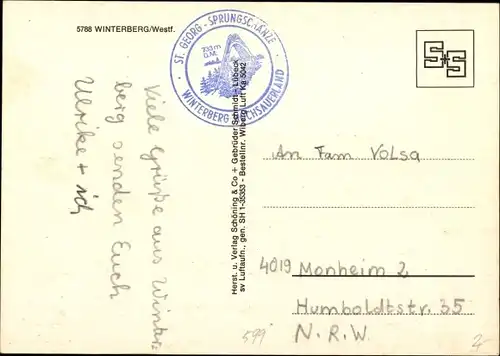 5788 WINTERBERG/Westf.
ST. GEORG - SPRUNGSCHANZE
733 m
ü.M.
WINTERBERG HOCHSAUERLAND
S+S
Viele Grüße aus Winter-
berg senden Euch
Ulrike + ich
Herst. u. Verlag Schöning & Co + Gebrüder Schmidt - Lübeck
sv Luftaufn., gen. SH 1-35353 - Bestellnr. Wiberg Luft Ka 5042
An Fam Volsa
4019 Monheim 2
Humboldtstr. 35
N.R.W.
599
2,-